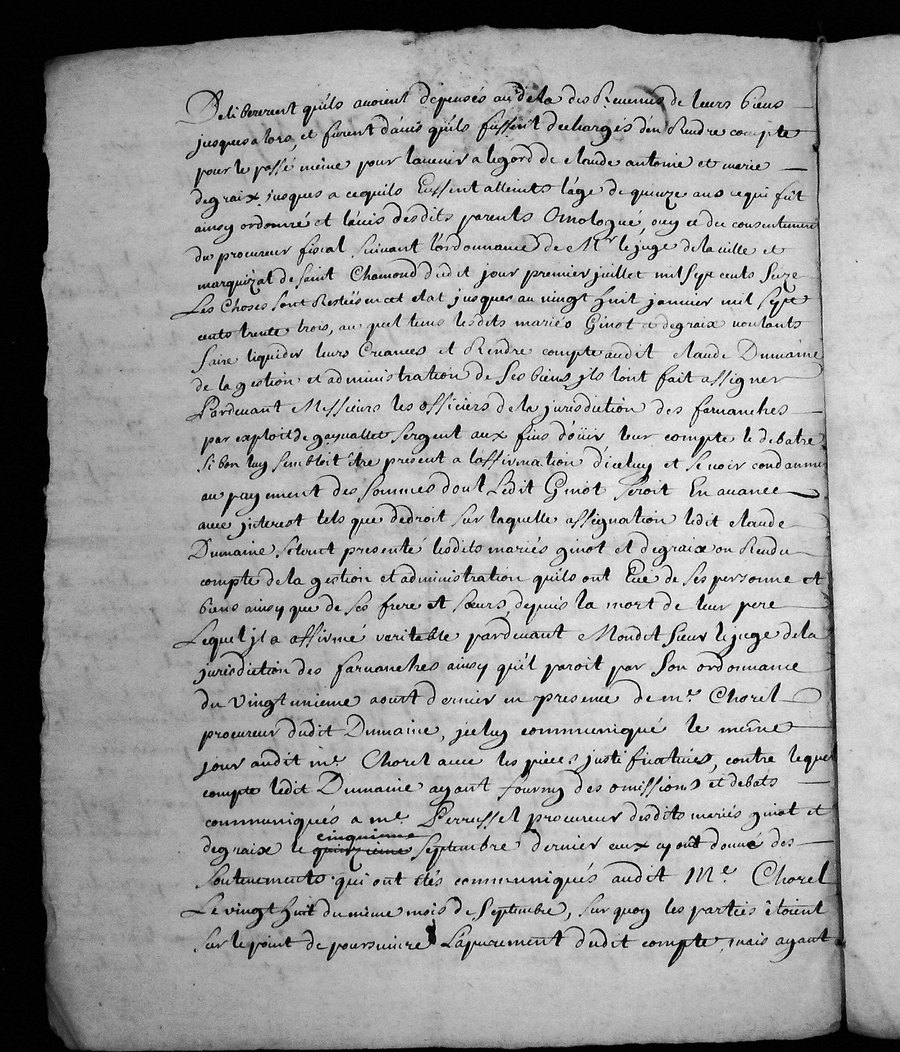 Delibererent qu'ils avoient depensés au dela des Revenus de leurs biens
jusques a lors, et furent d'avis qu'ils fussent dechargés d'en Rendre compte
pour le passé même pour lavenir a legard de claude antoine et marie
degraix, jusques a cequils Eussent atteints l'âge de quinze ans ce qui fût
ainsy ordonné et l'avis desdits parents Omologué, ouy et du consentement
du procureur fiscal suivant l'ordonnance de Mr. le juge de la ville et
marquizat de Saint Chamond dudit jour premier juillet mil sept cents Seize
Les Choses sont Restées en cet etat jusques au vingt huit janvier mil sept
cents trente trois, au quel tems lesdits mariés Ginot et degraix voulants
faire liquider leurs Creances et Rendre compte audit claude Dumaine
de la gestion et administration de Ses biens, ils l'ont fait assigner
Pardevant Messieurs les officiers de la jurisdiction des farnanches
par exploit de gayuallet sergent aux fins d'oüir leur compte le debatre
si bon luy sembloit être present a l'affirmation d'iceluy et se voir condamné
au payement des sommes dont Ledit Ginot seroit En avance
avec jnterest tels que de droit sur laquelle assignation ledit claude
Dumaine s'étant presenté lesdits mariés ginot et degraix on Rendu
compte de la gestion et administration qu'ils ont Eüe de Ses personne et
biens ainsy que de Ses frere et sœurs, depuis la mort de leur pere
Lequel jl a affirmé veritable pardevant Mondit Sieur le juge de la
jurisdiction des farnanches ainsy qu'il paroit par Son ordonnance
du vingt unieme aoust dernier en presence de me. Chorel
procureur dudit Dumaine, jceluy communiqué le même
jour audit me. Chorel avec les pieces justificatives, contre lequel
compte ledit Dumaine ayant fourny des omissions et debats
communiqués a me. Perrussel procureur desdits mariés ginot et
degraix le quinzieme cinquieme Septembre dernier eux ayant donné des
soutenements qui ont étés communiqués audit Me. Chorel
Le vingt huit du même mois de Septembre, sur quoy les parties étoient
sur le point de poursuivre L'apurement dudit compte, mais ayant